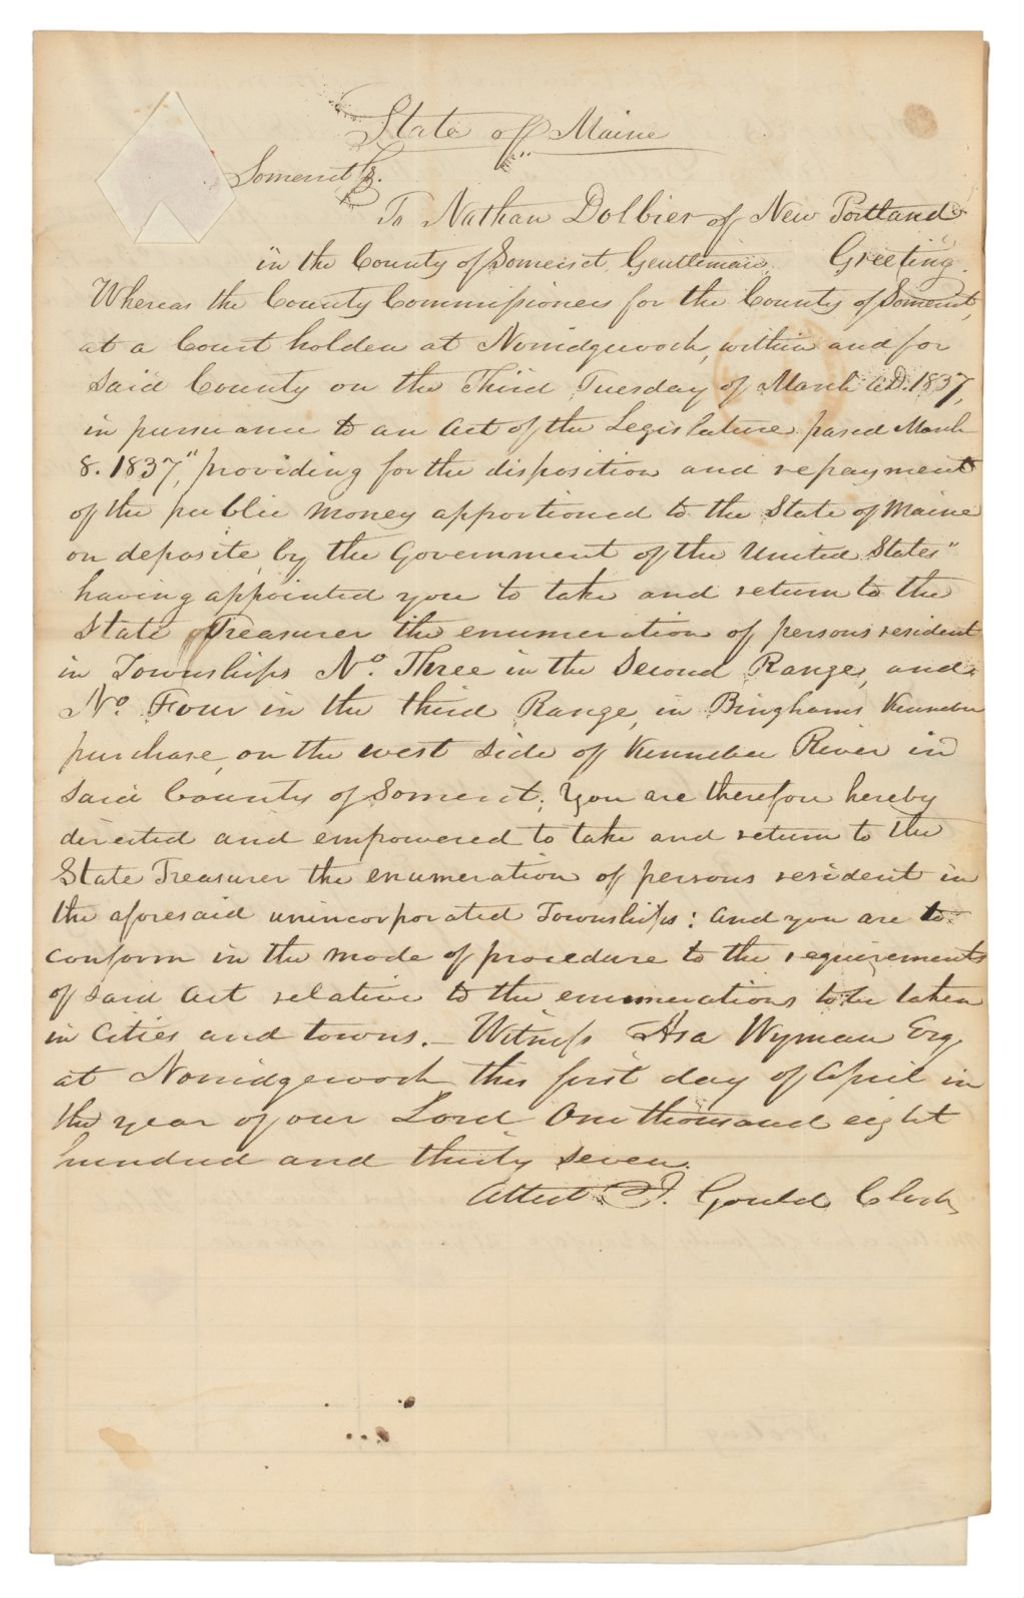 State of Maine
Somerset ss.
To Nathan Dolbier of New Portland
in the County of Somerset, Gentleman, Greeting.
Whereas the County Commissioners for the County of Somerset,
at a Court holden at Norridgewock, within and for
said County on the Third Tuesday of March A.D. 1837,
in pursuance to an Act of the Legislature, passed March
8. 1837, "providing for the disposition and repayment
of the public money apportioned to the State of Maine
on deposite, by the Government of the United States"
having appointed you to take and return to the
State Treasurer the enumeration of persons resident
in Townships No. Three in the Second Range, and
No. Four in the third Range, in Binghams Kennebec
purchase, on the west side of Kennebec River in
said County of Somerset; You are therefore hereby
directed and empowered to take and return to the
State Treasurer the enumeration of persons resident in
the aforesaid unincorporated Townships: And you are to
conform in the mode of procedure to the requirements
of said Act relative to the enumerations to be taken
in Cities and towns. – Witness Asa Wyman Esq.
at Norridgewock this first day of April in
the year of our Lord One thousand eight
hundred and thirty seven.
Attest J. Gould Clerk